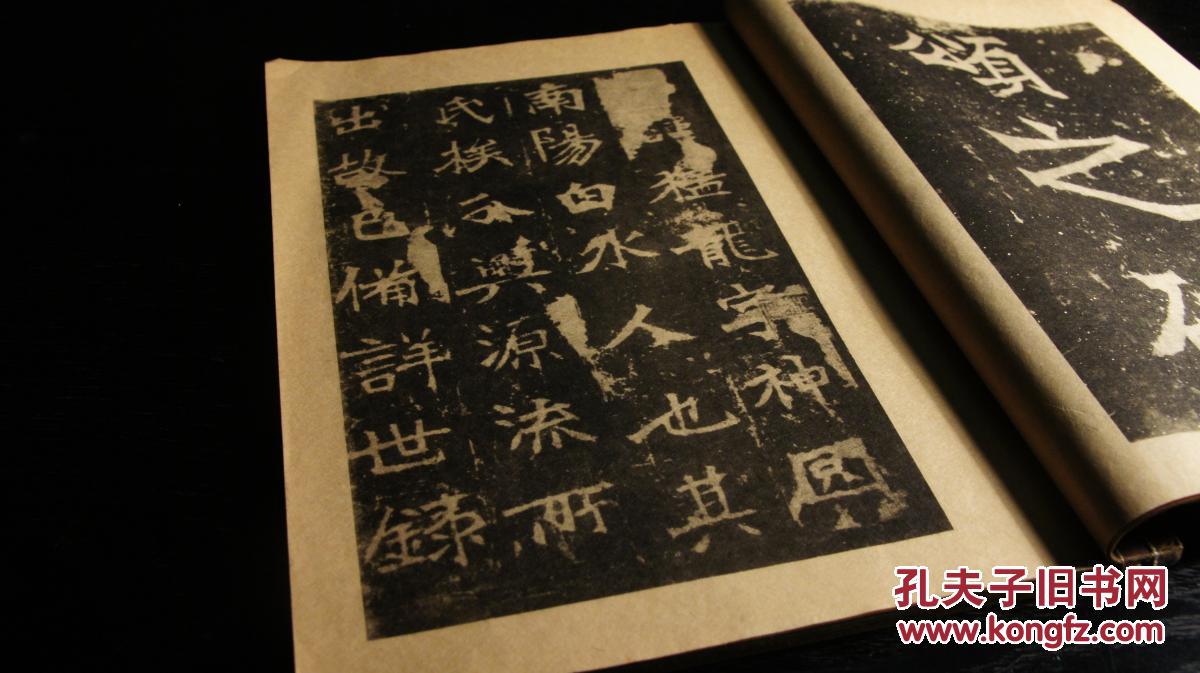 頌之
猛龍字神圓
南陽白水人也其
氏族分興源流所
出故已備詳世錄
孔夫子旧书网
www.kongfz.com